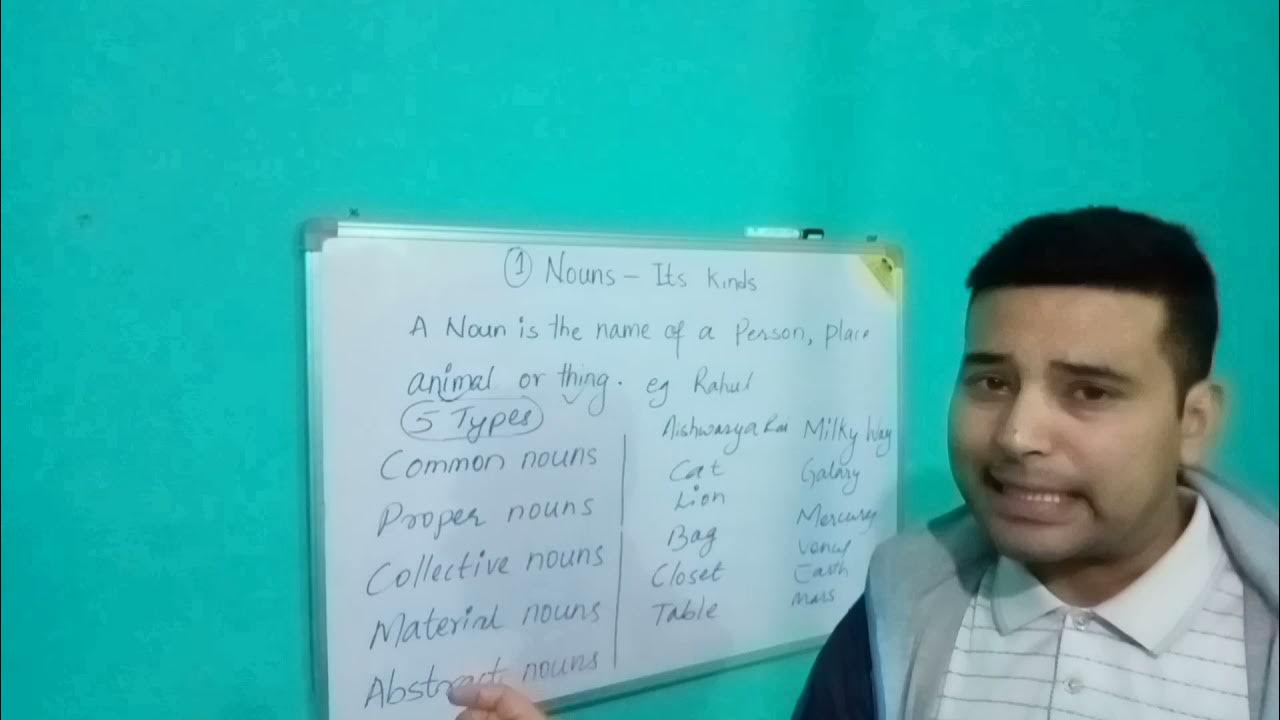 ① Nouns – Its Kinds
A Noun is the name of a Person, place
animal or thing. eg Rahul
5 Types
Common nouns
Proper nouns
Collective nouns
Material nouns
Abstract nouns
Aishwarya Rai
Cat
Lion
Bag
Closet
Table
Milky Way
Galaxy
Mercury
Venus
Earth
Mars